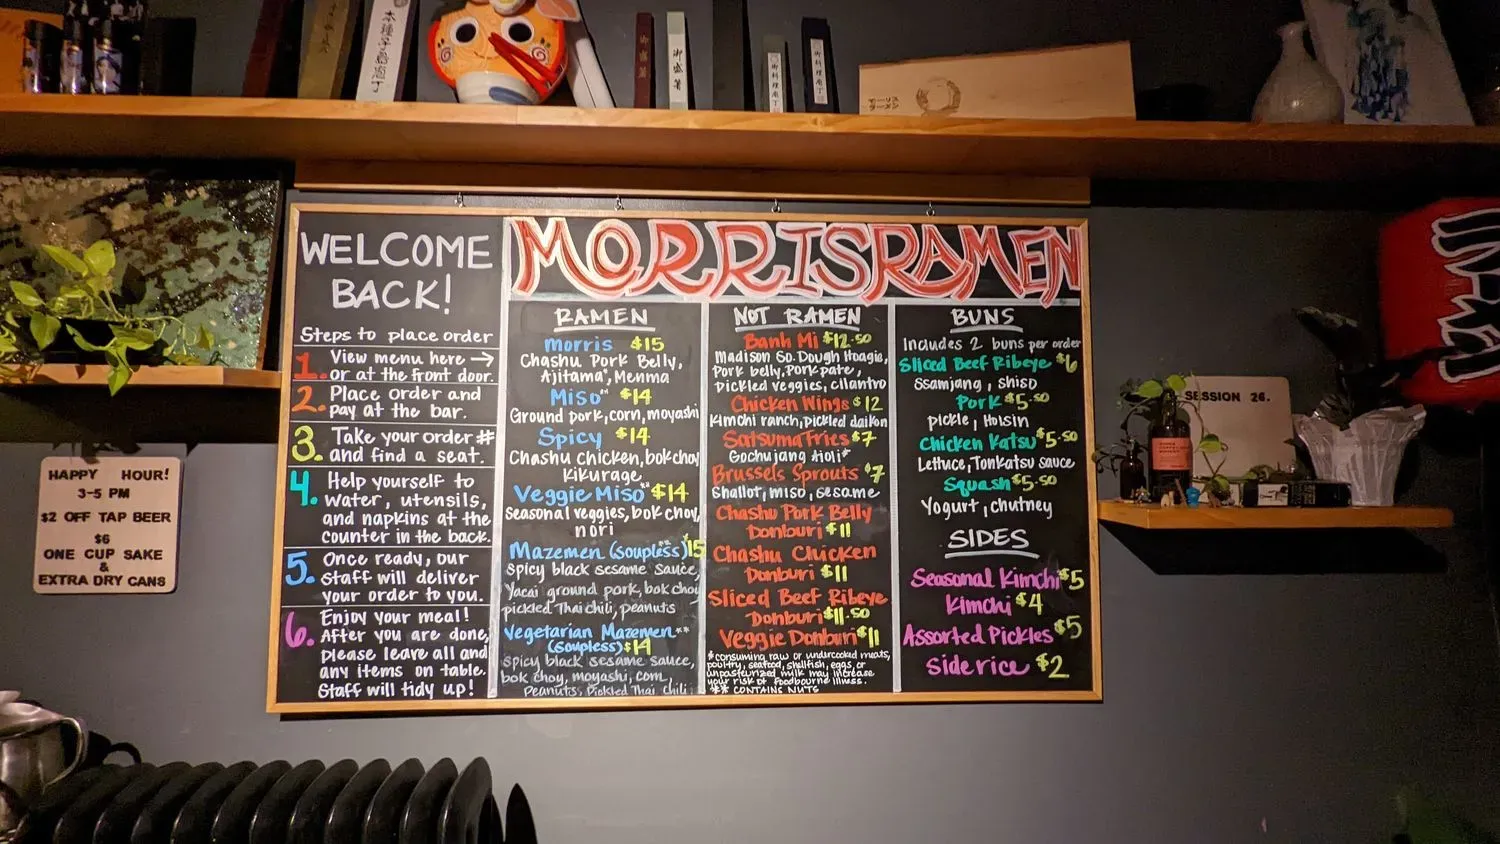 WELCOME
BACK!
Steps to place order
1. View menu here →
or at the front door.
2. Place order and
pay at the bar.
3. Take your order #
and find a seat.
4. Help yourself to
water, utensils,
and napkins at the
counter in the back.
5. Once ready, our
staff will deliver
your order to you.
6. Enjoy your meal!
After you are done,
please leave all and
any items on table.
Staff will tidy up!
MORRISRAMEN
RAMEN
Morris $15
Chashu Pork Belly,
Ajitama*, Menma
Miso** $14
Ground pork, corn, moyashi
Spicy $14
Chashu chicken, bok choy
Kikurage
Veggie Miso** $14
Seasonal veggies, bok choy,
nori
Mazemen (Soupless)** $15
Spicy black sesame sauce,
Yacai ground pork, bok choy
pickled Thai chili, peanuts
Vegetarian Mazemen**
(Soupless) $14
Spicy black sesame sauce,
bok choy, moyashi, corn,
Peanuts, Pickled Thai chili
NOT RAMEN
Banh Mi $12.50
Madison So. Dough Hoagie,
Pork belly, Pork pate,
pickled veggies, cilantro
Chicken Wings $12
Kimchi ranch, pickled daikon
Satsuma Fries $7
Gochujang Aioli*
Brussels Sprouts $7
Shallot, miso, sesame
Chashu Pork Belly
Donburi $11
Chashu Chicken
Donburi $11
Sliced Beef Ribeye
Donburi $11.50
Veggie Donburi $11
*consuming raw or undercooked meats,
poultry, seafood, shellfish, eggs, or
unpasteurized milk may increase
your risk of foodbourne illness.
** CONTAINS NUTS
BUNS
Includes 2 buns per order
Sliced Beef Ribeye $6
Ssamjang, shiso
Pork $5.50
pickle, Hoisin
Chicken Katsu $5.50
Lettuce, Tonkatsu sauce
Squash $5.50
Yogurt, chutney
SIDES
Seasonal Kimchi $5
Kimchi $4
Assorted Pickles $5
Side rice $2
HAPPY HOUR!
3-5 PM
$2 OFF TAP BEER
$6
ONE CUP SAKE
&
EXTRA DRY CANS
SESSION 26.